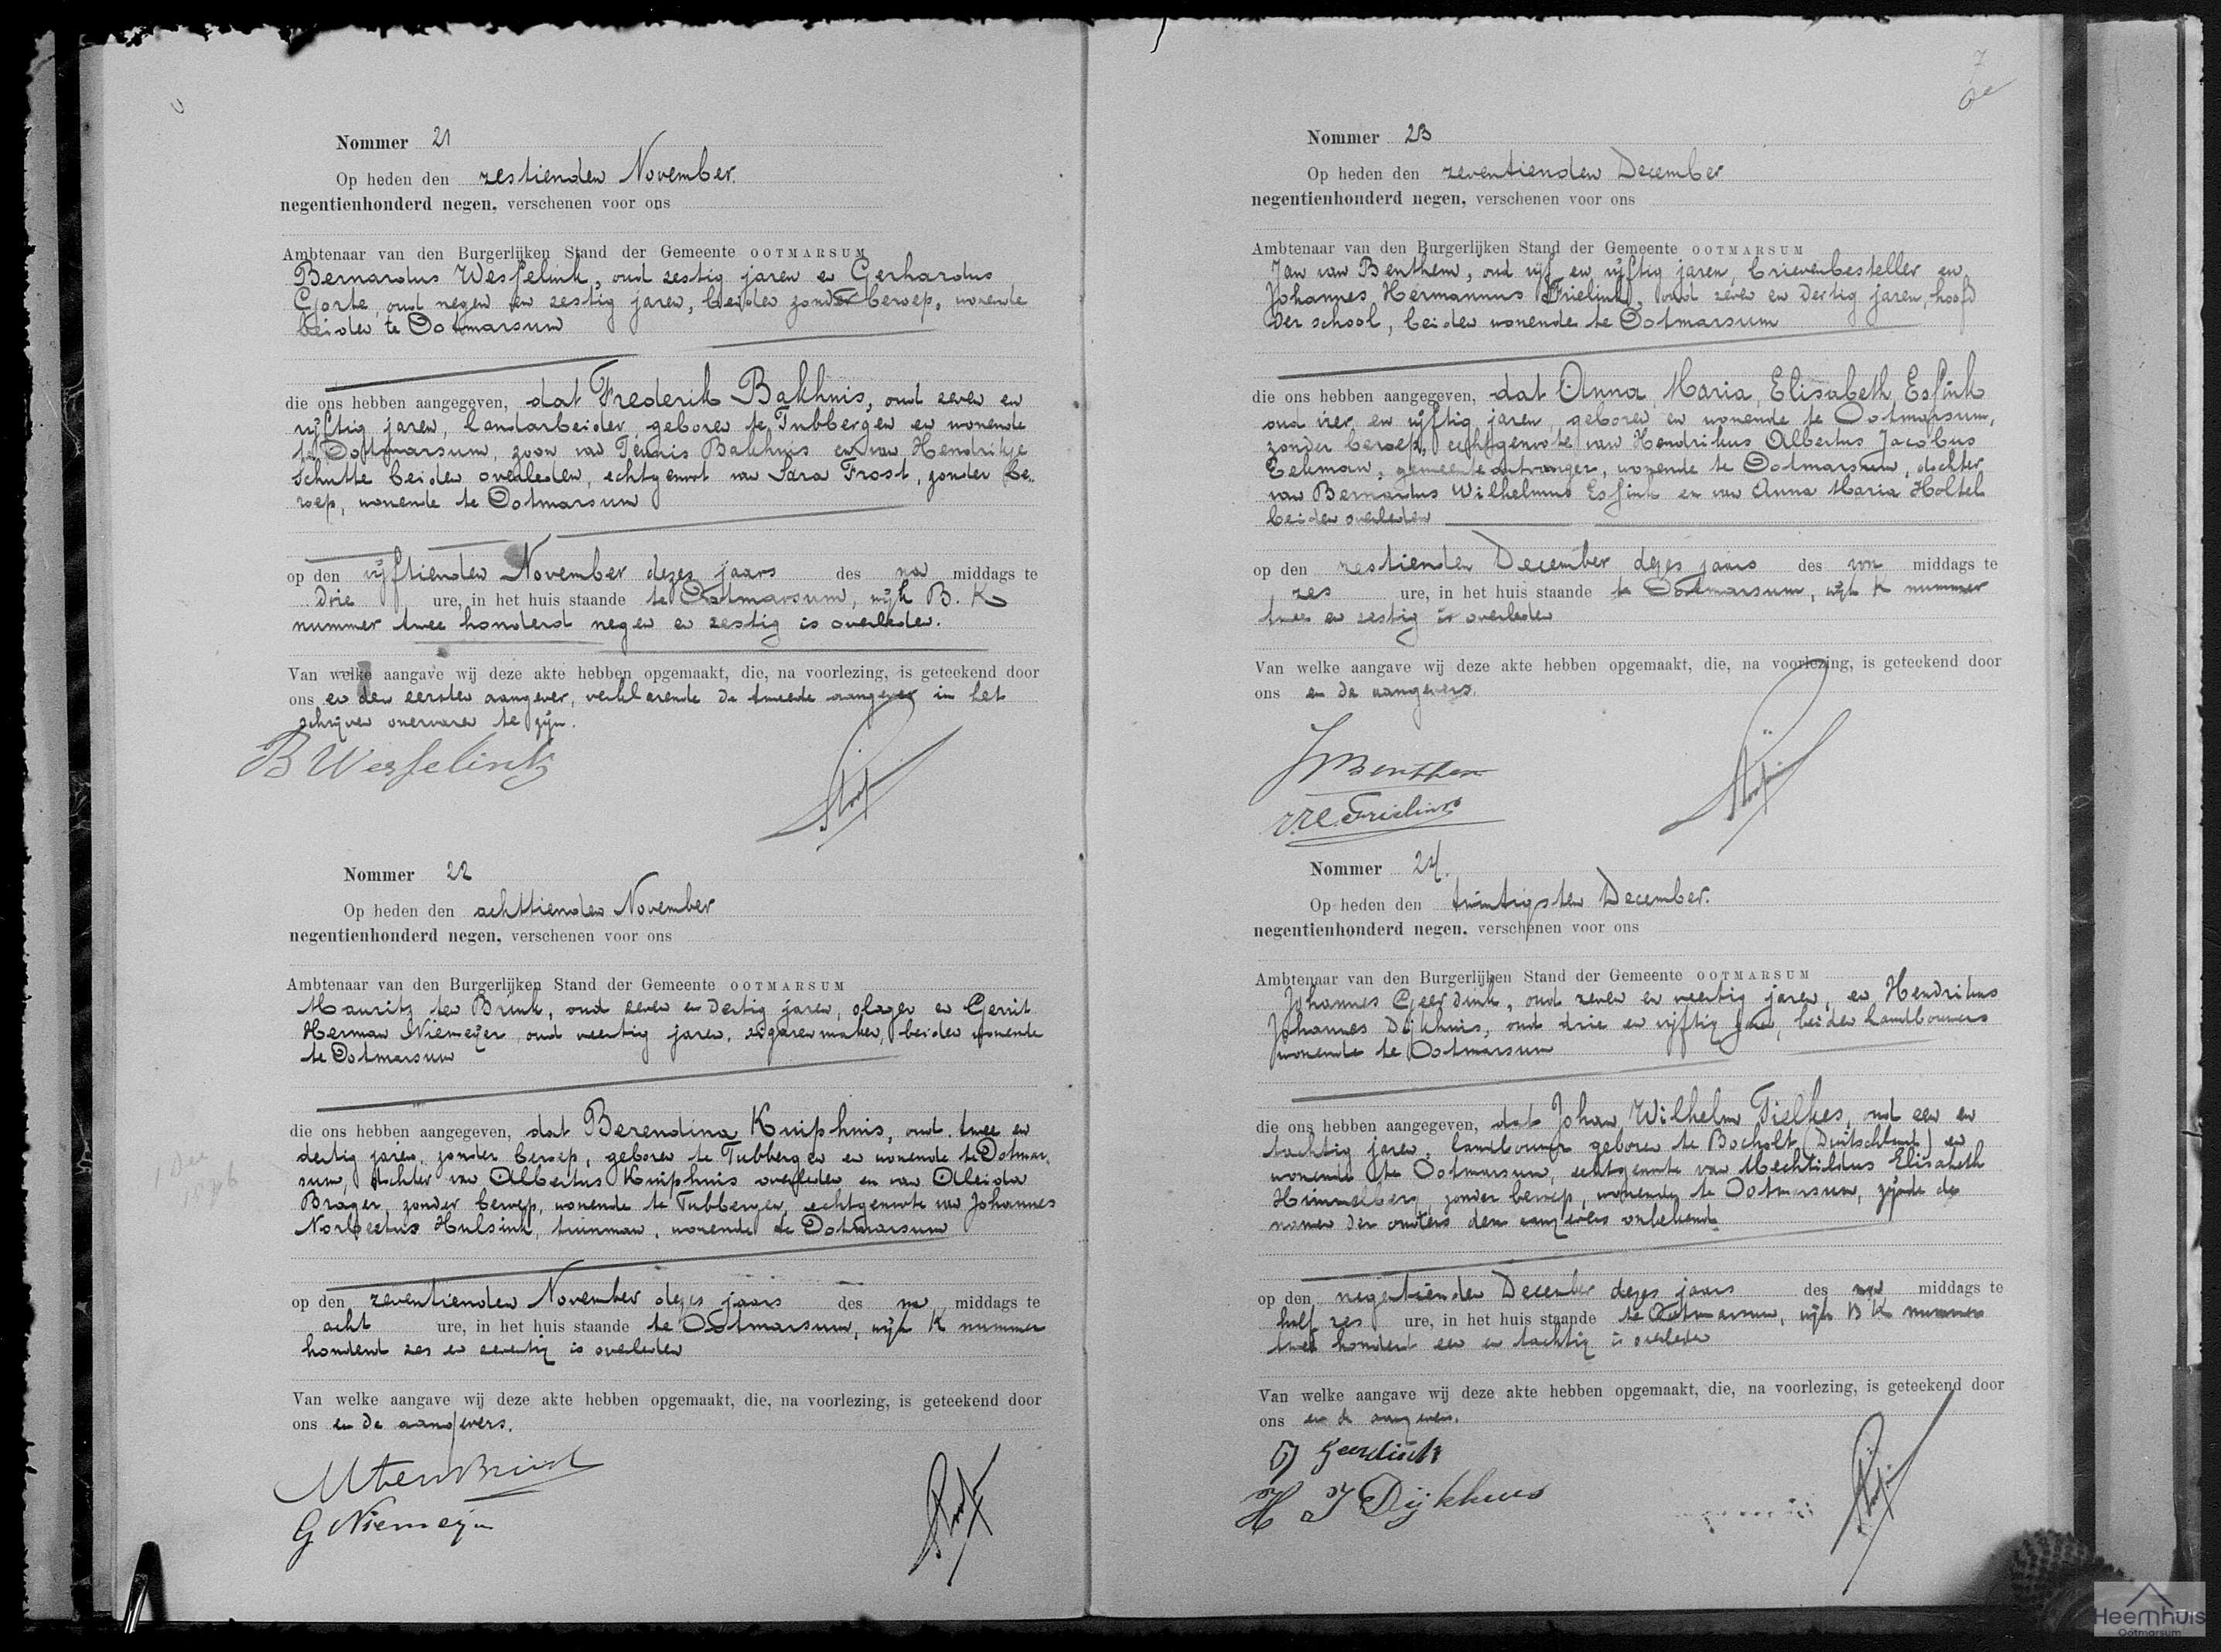 Nommer 21
Op heden den zestienden November
negentienhonderd negen, verschenen voor ons
Ambtenaar van den Burgerlijken Stand der Gemeente OOTMARSUM
Bernardus Wesselink, oud zestig jaren en Gerhardus
oud negen en zestig jaren, beiden zonder beroep, wonende
beiden te Ootmarsum
die ons hebben aangegeven, dat Frederik Bakhuis, oud zeven en
vijftig jaren, landarbeider, geboren te Tubbergen en wonende
te Ootmarsum, zoon van Teunis Bakhuis en van Hendrikje
Schutte beiden overleden, echtgenoot van Sara Frost, zonder be-
roep, wonende te Ootmarsum
op den vijftienden November dezes jaars des na middags te
drie ure, in het huis staande te Ootmarsum, wijk B. K
nummer twee honderd negen en zestig is overleden.
Van welke aangave wij deze akte hebben opgemaakt, die, na voorlezing, is geteekend door
ons en den eersten aangever, verklarende de tweede aangever in het
schrijven onervaren te zijn.
B Wesselink
Nommer 22
Op heden den achttienden November
negentienhonderd negen, verschenen voor ons
Ambtenaar van den Burgerlijken Stand der Gemeente OOTMARSUM
Maurits ten Brink, oud zeven en dertig jaren, slager en Gerrit
Herman Niemeijer oud veertig jaren, sigarenmaker, beiden wonende
te Ootmarsum
die ons hebben aangegeven, dat Berendina Kuiphuis, oud twee en
dertig jaren, zonder beroep, geboren te Tubbergen en wonende te Ootmar-
sum, dochter van Albertus Kuiphuis overleden en van Aleida
Brager, zonder beroep, wonende te Tubbergen, echtgenoote van Johannes
Norbertus Hulsink, tuinman, wonende te Ootmarsum
op den zeventienden November dezes jaars des na middags te
acht ure, in het huis staande te Ootmarsum, wijk K nummer
honderd zes en zeventig is overleden
Van welke aangave wij deze akte hebben opgemaakt, die, na voorlezing, is geteekend door
ons en de aangevers.
M ten Brink
G Niemeijer
Nommer 23
Op heden den zeventienden December
negentienhonderd negen, verschenen voor ons
Ambtenaar van den Burgerlijken Stand der Gemeente OOTMARSUM
Jan van Benthem, oud vijf en vijftig jaren, brievenbesteller en
Johannes Hermannus Frielink, oud zeven en dertig jaren, hoofd
der school, beiden wonende te Ootmarsum
die ons hebben aangegeven, dat Anna Maria Elisabeth Essink
oud vier en vijftig jaren, geboren en wonende te Ootmarsum,
zonder beroep, echtgenoote van Hendrikus Albertus Jacobus
Eekman, gemeenteontvanger, wonende te Ootmarsum, dochter
van Bernardus Wilhelmus Essink en van Anna Maria Holtel
beiden overleden
op den zestienden December dezes jaars des voor middags te
zes ure, in het huis staande te Ootmarsum, wijk K nummer
twee en zestig is overleden
Van welke aangave wij deze akte hebben opgemaakt, die, na voorlezing, is geteekend door
ons en de aangevers.
JvBenthem
Frielink
Nommer 24.
Op heden den twintigsten December.
negentienhonderd negen, verschenen voor ons
Ambtenaar van den Burgerlijken Stand der Gemeente OOTMARSUM
Johannes Geerdink, oud zeven en veertig jaren, en Hendrikus
Johannes Dijkhuis, oud drie en vijftig jaren, beiden landbouwers
wonende te Ootmarsum
die ons hebben aangegeven, dat Johan Wilhelm Tielkes, oud een en
tachtig jaren, landbouwer geboren te Bocholt (Duitschland) en
wonende te Ootmarsum, echtgenoote van Mechtildus Elisabeth
Himmelberg, zonder beroep, wonende te Ootmarsum, zijnde de
namen der ouders den aangevers onbekend
op den negentienden December dezes jaars des na middags te
half zes ure, in het huis staande te Ootmarsum, wijk B K nummer
twee honderd een en tachtig is overleden
Van welke aangave wij deze akte hebben opgemaakt, die, na voorlezing, is geteekend door
ons en de aangevers.
Geerdink
H J Dijkhuis
Heemhuis
Ootmarsum